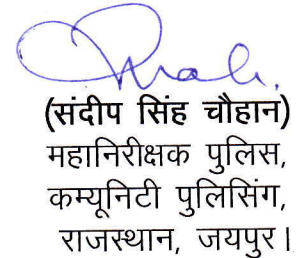 (संदीप सिंह चौहान)
महानिरीक्षक पुलिस,
कम्यूनिटी पुलिसिंग,
राजस्थान, जयपुर।